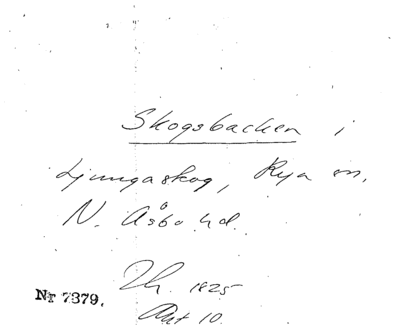 Skogsbacken i
Ljungaskog, Rya sn,
N. Åsbo hd.
Th. 1825
Akt 10.
Nr 7379.